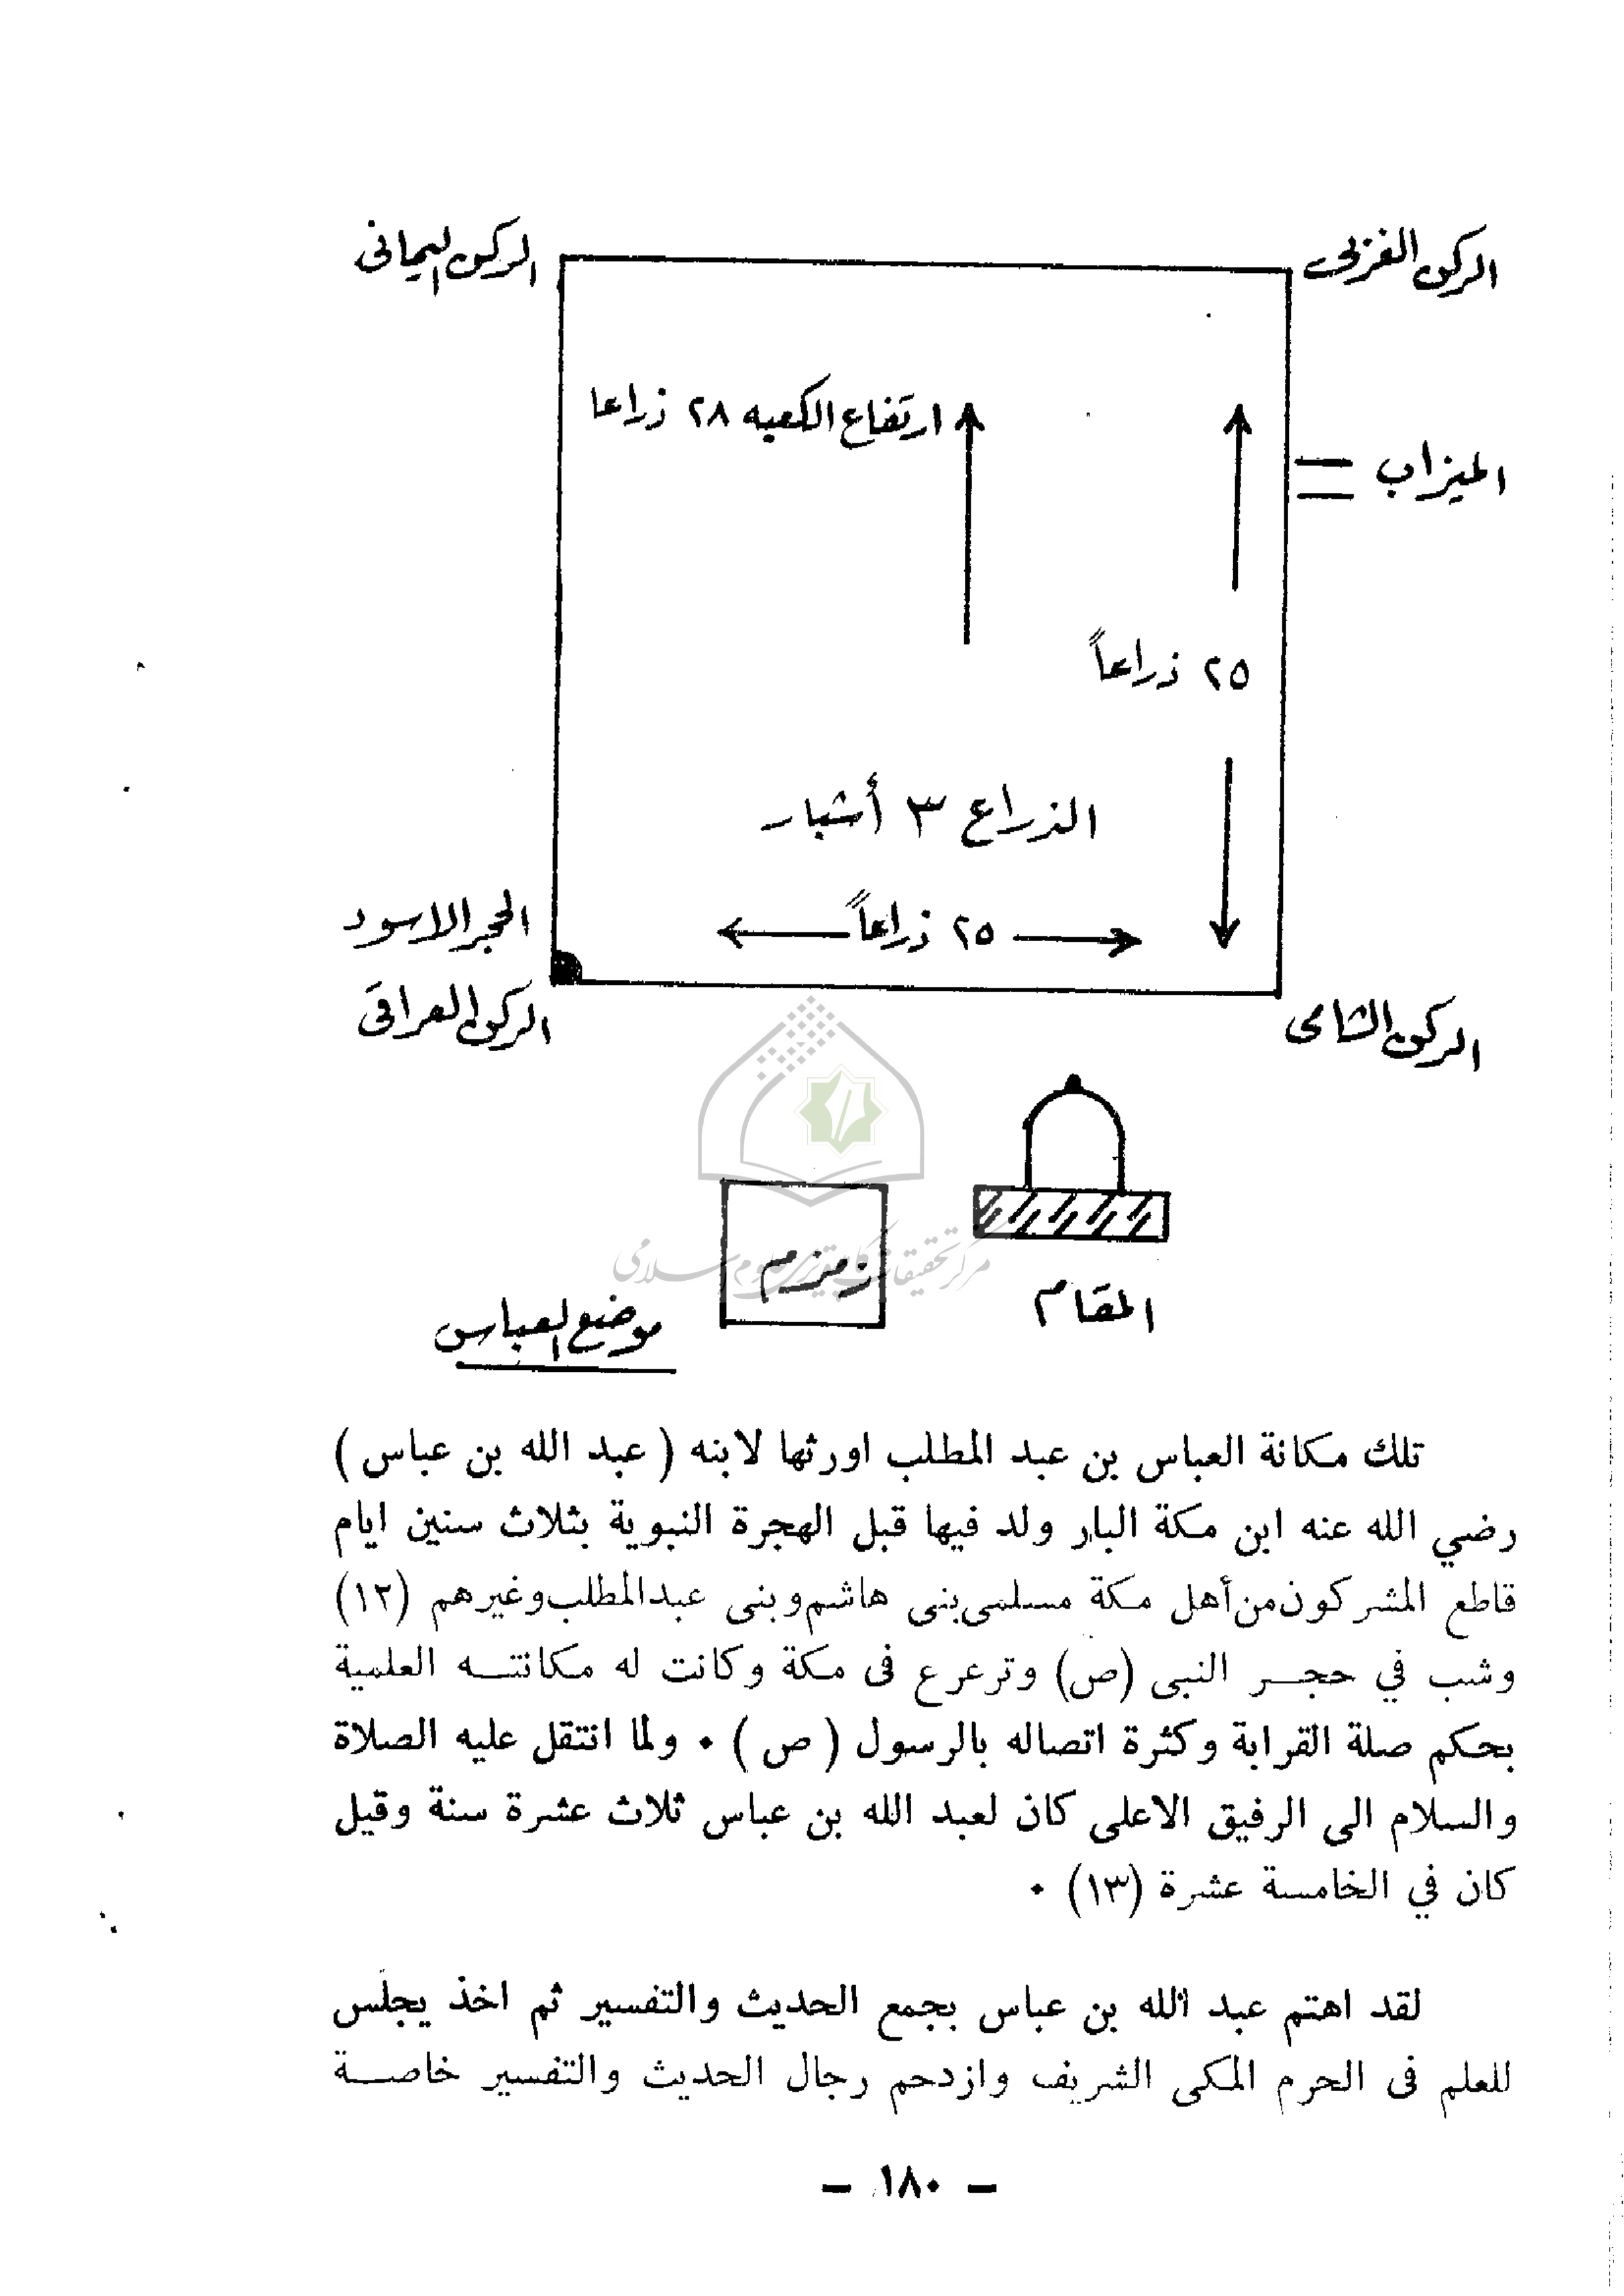 الركن الغربي
الركن اليماني
ارتفاع الكعبه ٢٨ ذراعا
الميزاب
٢٥ ذراعاً
الذراع ٣ أشبار
٢٥ ذراعاً
الحجر الاسود
الركن العراقي
الركن الشامي
زمزم
المقام
موضع العباس
مرکز تحقیقات کامپیوتری علوم اسلامی
تلك مكانة العباس بن عبد المطلب اورثها لابنه ( عبد الله بن عباس )
رضي الله عنه ابن مكة البار ولد فيها قبل الهجرة النبوية بثلاث سنين ايام
قاطع المشركون من أهل مكة مسلمى بنى هاشم وبنى عبد المطلب وغيرهم (١٢)
وشب في حجـــر النبى (ص) وترعرع فى مكة وكانت له مكانتـــه العلمية
بحكم صلة القرابة وكثرة اتصاله بالرسول ( ص ) ٠ ولما انتقل عليه الصلاة
والسلام الى الرفيق الاعلى كان لعبد الله بن عباس ثلاث عشرة سنة وقيل
كان في الخامسة عشرة (١٣) ٠
لقد اهتم عبد الله بن عباس بجمع الحديث والتفسير ثم اخذ يجلس
للعلم فى الحرم المكى الشريف وازدحم رجال الحديث والتفسير خاصـــة
— ١٨٠ —